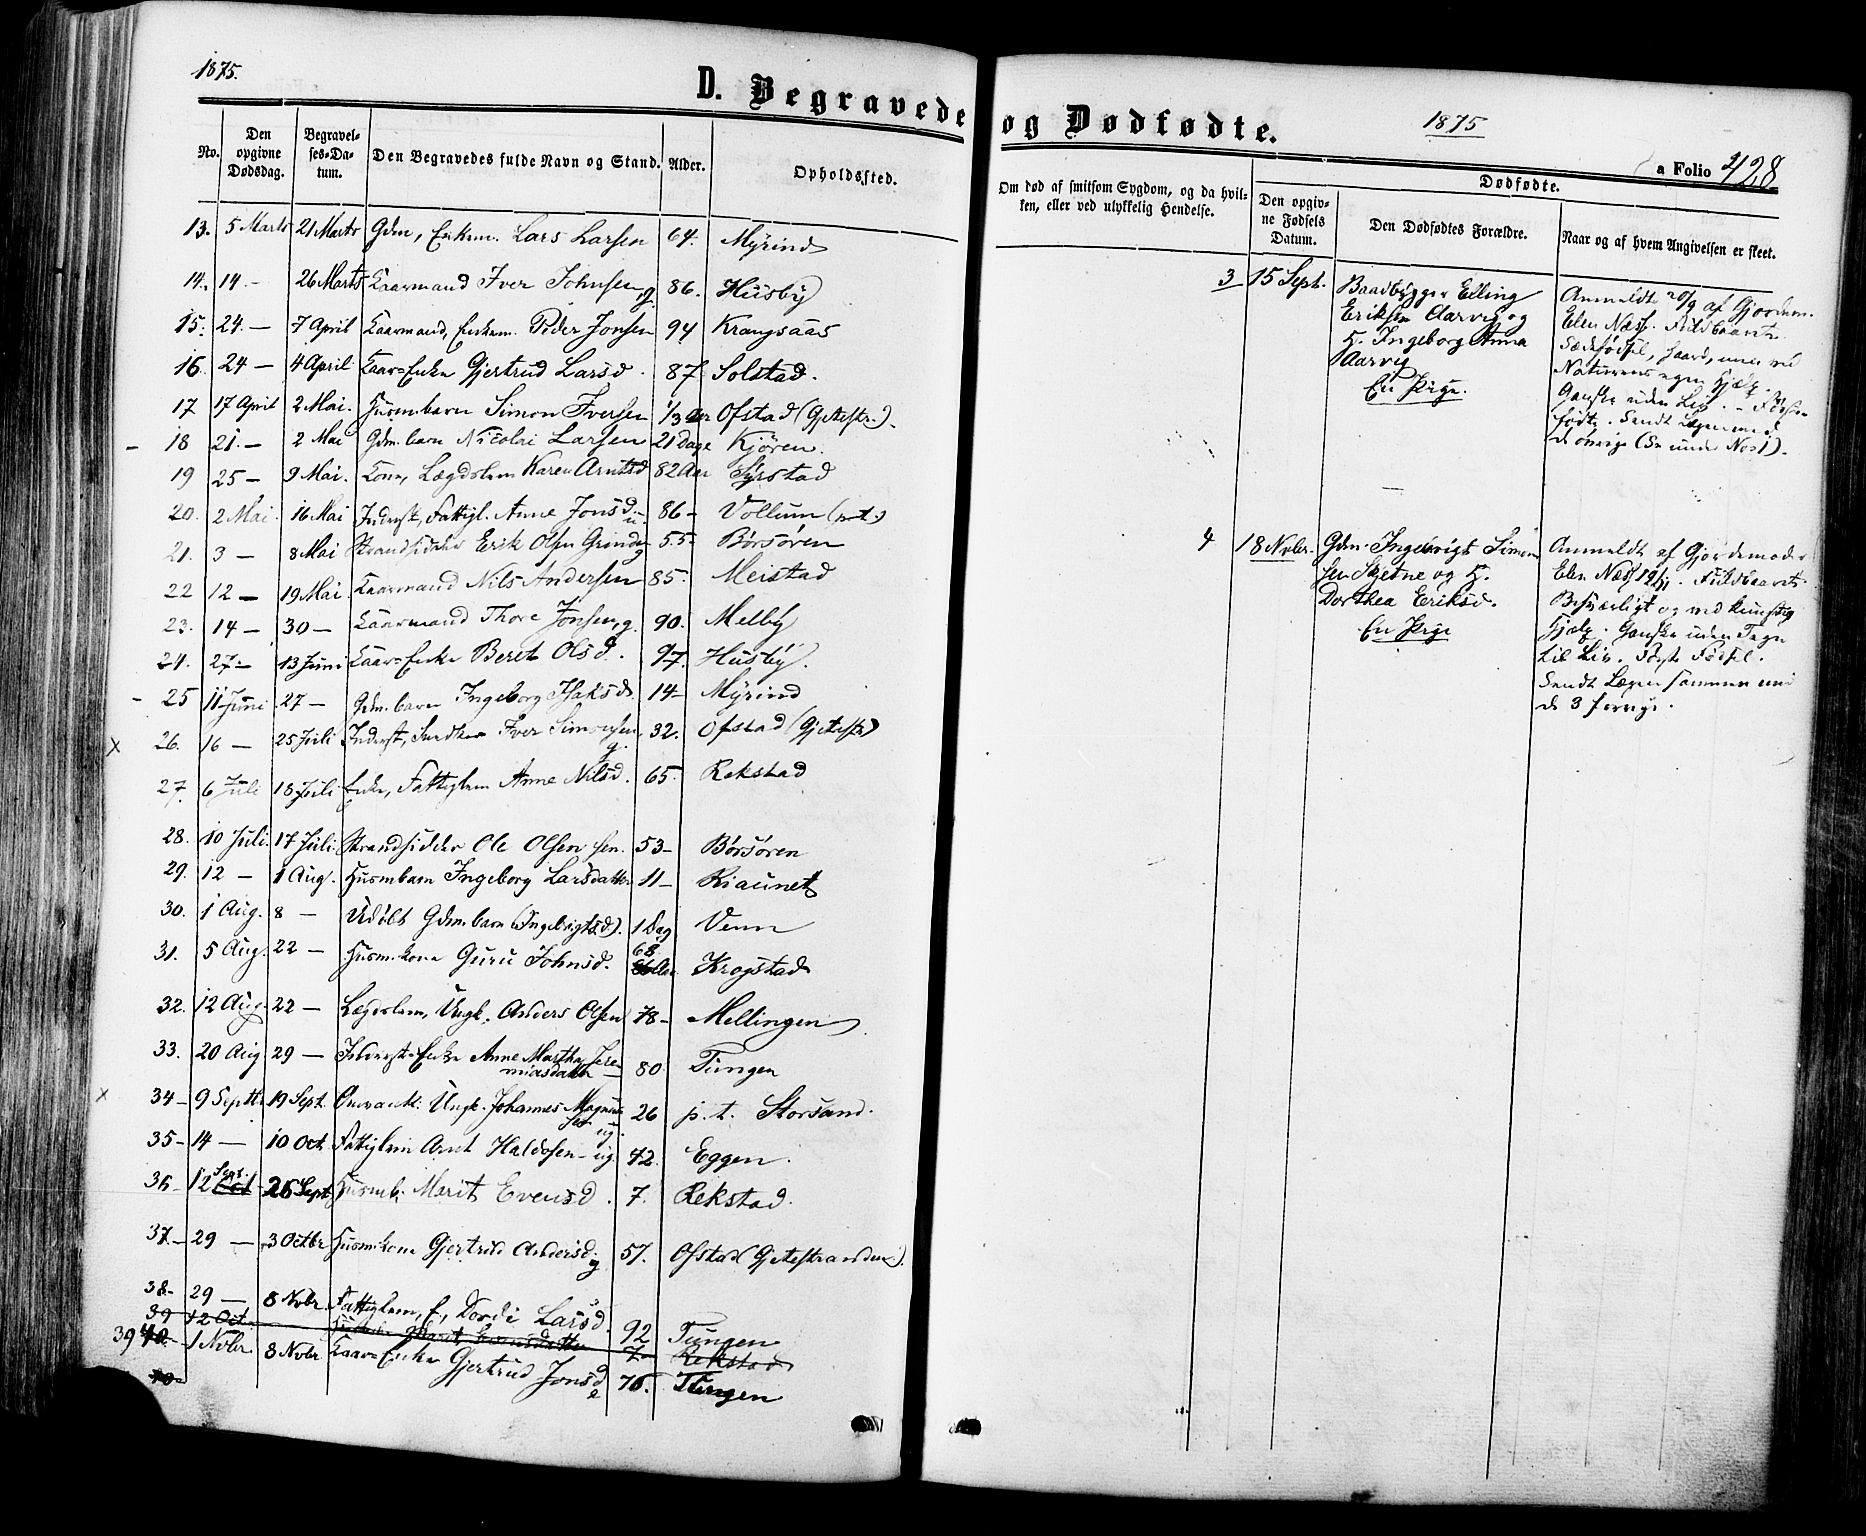 1875.
D. Begravede
No.
Den opgivne Dødsdag.
Begravelses-Datum.
Den Begravedes fulde Navn og Stand.
Alder.
Opholdssted.
13. 5 Marts 21 Marts Gdm, Enkem. Lars Larsen 64. Myrind
14. 14. - 26 Marts Kaarmand Iver Johnsen, g. 86. Husby
15. 24. — 7 April Kaarmand, Enkem. Peder Jonsen 94 Krangsaas
16. 24 — 4 April Kaar-Enke Gjertrud Larsd. 87 Solstad.
17 17 April 2 Mai. Husmbarn Simon Iversen 1/3 Aar Ofstad (Gjetestr.).
- 18 21. — 2 Mai Gdm. barn Nicolai Larsen 21 Dage Kjören.
19 25 — 9 Mai. Kone, Lægdslem Karen Arntsd 82 Aar Syrstad
20. 2 Mai. 16 Mai Inderst, Fattigl. Anne Jonsd. u. 86 - Vollum
21. 3 — 8 Mai Strandsidder Erik Olsen Grinde g 55. Börsören
22 12 — 19 Mai Kaarmand Nils Andersen 85. Meistad
23. 14 — 30 — Kaarmand Thore Jonsen, g. 90. Melby
24. 27 - 13 Juni Kaar-Enke Beret Olsd. 97. Husby.
- 25 11 Juni 27 — Gdm. barn Ingeborg Isaksd. 14 - Myrind
x 26. 16 — 25 Juli Inderst, Snedker Iver Simonsen, g. 32. Ofstad (Gjetestr)
27. 6 Juli 18 Juli Enke, Fattiglem Anne Nilsd. 65. Rekstad
28. 10 Juli. 17 Juli. Strandsidder Ole Olsen sen. 53 - Börsören
29. 12 — 1 Aug. Husmbarn Ingeborg Larsdatter 11 - Riaunet
30. 1 Aug. 8 — Udöbt Gdm. barn (Ingebrigtsd). 1 Dag Venn
31. 5 Aug. 22 — Husm. kone Guru Johnsd. 68 Aar Krogstad
32. 12 Aug. 22 — Lægdslem, Ungk. Anders Olsen 78 - Mellingen
33. 20 Aug 29 — Inderst-Enke Anne Martha Jere
miasdatter 80 Tungen
x 34 - 9 Septbr 19 Sept. Ungk. Johannes Magnus
sen ug. 26 p. t. Storsand.
35 - 14 — 10 Oct. Fattiglem Arnt Haldosen - ug. 72. Eggen.
36 - 12 Sept. Oct 26 Sept. Husmb. Marit Evensd. 7. Rekstad.
37 - 29 — 3 Octbr Husmkone Gjertrud Andersd. g 57. Ofstad (Gjetestranden).
38 - 29 — 8 Nvbr. Fattiglem, E, Dordi Larsd. 92 Tungen
39 12 Oct. Marit Evensdatter 7 - Rekstad
39 40 - 1 Nvbr. 8 Nvbr Kaar-Enke Gjertrud Jonsd e 76. Tungen
40
og Dødfødte.
1875
a Folio 428
Om død af smitsom Sygdom, og da hvilken, eller ved ulykkelig Hendelse.
Dødfødte.
Den opgivne Fødsels Datum.
Den Dødfødtes Forældre.
Naar og af hvem Angivelsen er skeet.
3 15 Sept.
Baadbygger Elling
Eriksen Aarvig og
H. Ingeborg Anna
Aarvig
En Pige.
Anmeldt 20/9 af Gjordem.
Elen Næss. Fuldbaaret.
Sædefödsel, haard, men ved
Naturens egen Hjælp.
Ganske uden Liv. - Förste
födte. Sendt Lægen med
de övrige (Se under No 1).
4 18 Nvbr.
Gdm. Ingebrigt Simon
sen Skjetne og H.
Dorthea Eriksd.
En Pige
Anmeldt af Gjordemoder
Elen Næss 19/11. Fuldbaaret.
Besværligt og med kunstig
Hjælp. Ganske uden Tegn
til Liv. Förste Fødsel.
Sendt Lægen sammen med
de 3 forrige.